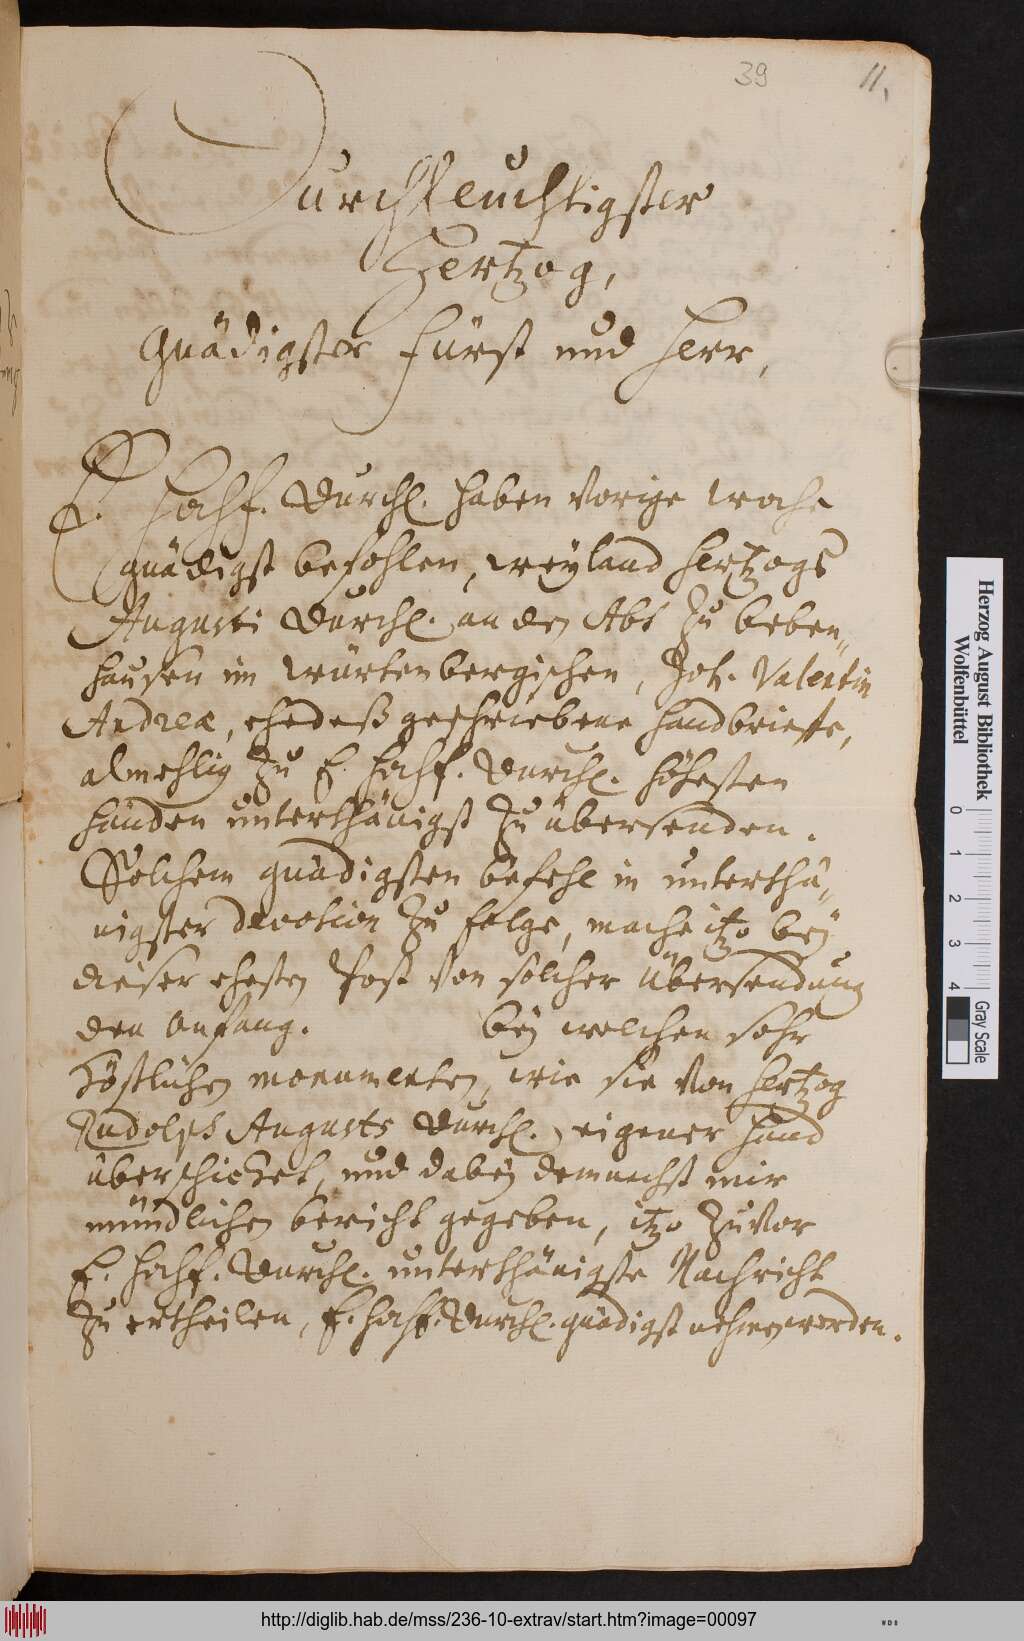 39
11.
Durchleuchtigster
Hertzog,
Gnädigster Fürst und Herr,
E. Hochf. Durchl. haben vorige woche
gnädigst befohlen, weyland Hertzogs
Augusti Durchl. an den Abt zu Beben-
hausen im Würtenbergischen, Joh. Valentin
Andreæ, ehedeß geschriebene Handbrieffe,
almehlig zu E. Hochf. Durchl. höhesten
händen unterthänigst zu übersenden.
Solchem gnädigsten befehl in unterthä-
nigster devotion zu folge, mache itzo bey
dieser ehesten Post von solcher übersendung
den Anfang. bey welchen sehr
köstlichen monumenten, wie sie von Hertzog
Rudolph Augusts Durchl. eigener Hand
überschicket, und dabey demnechst mir
mündlichen bericht gegeben, itzo zuvor
E. Hochf. Durchl. unterthänigste Nachricht
zu ertheilen, E. Hochf. Durchl. gnädigst nehmen werden.
Herzog August Bibliothek
Wolfenbüttel
0 1 2 3 4
Gray Scale
http://diglib.hab.de/mss/236-10-extrav/start.htm?image=00097